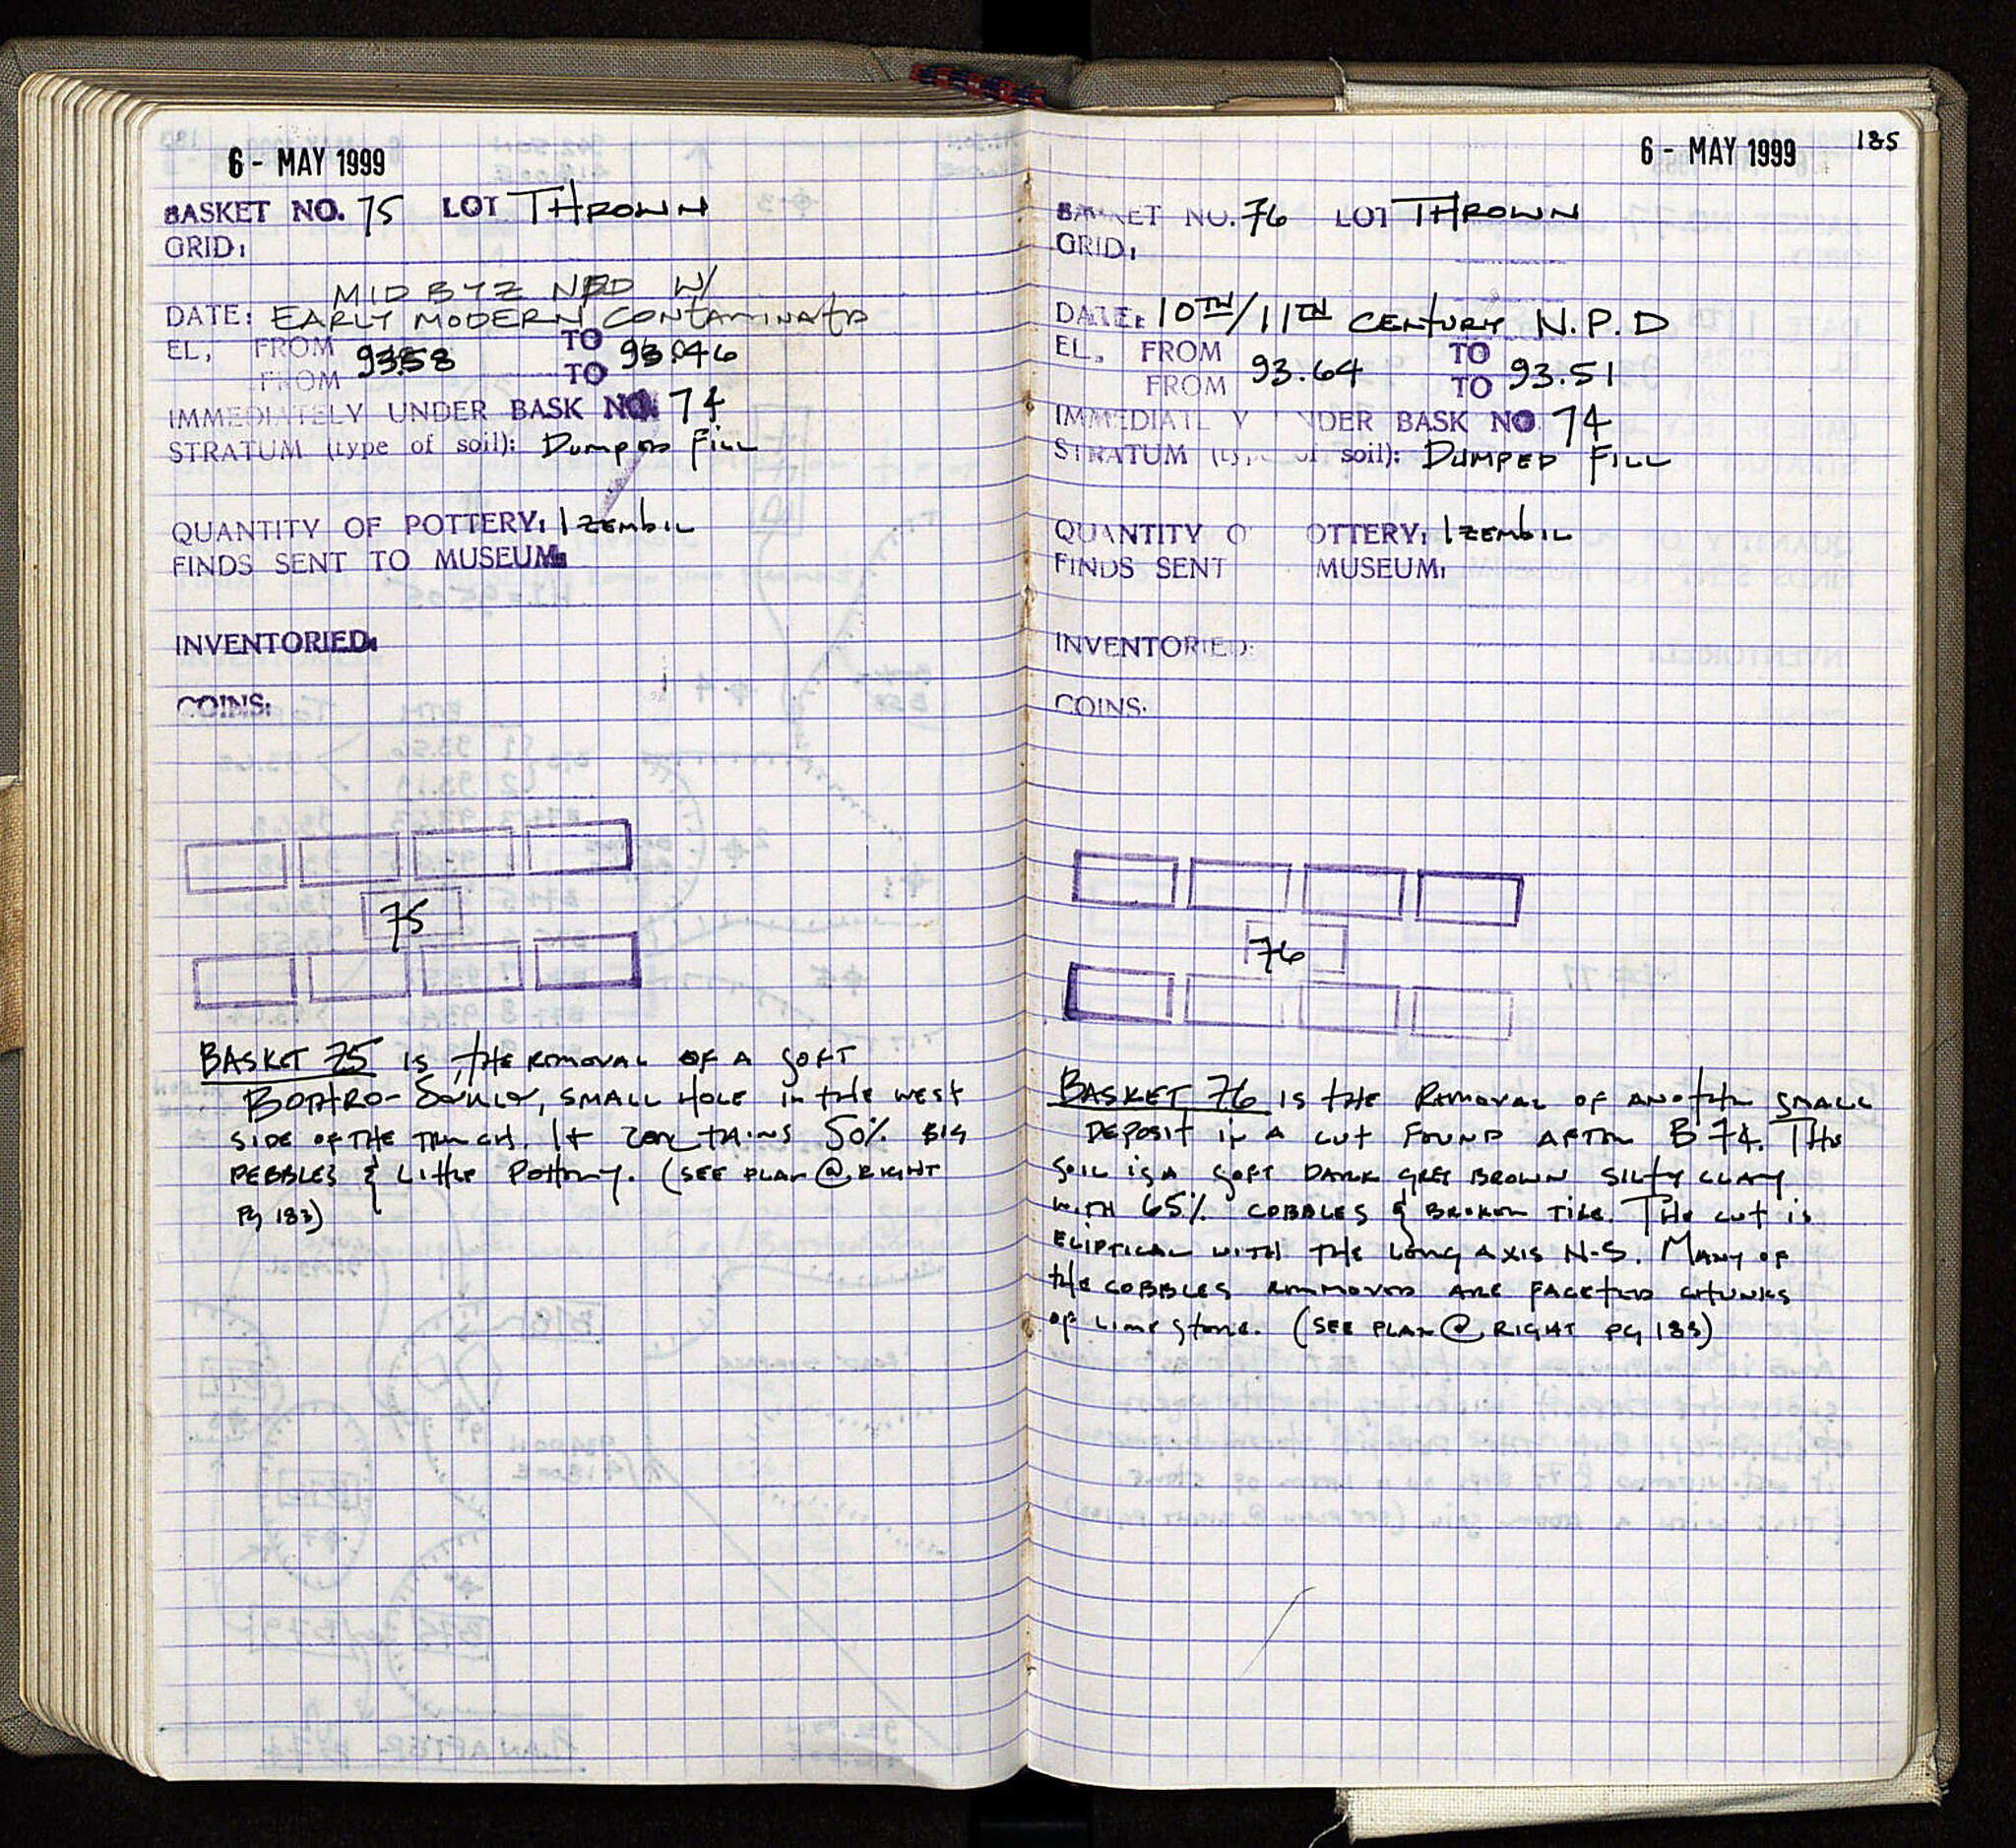 6 - MAY 1999
BASKET NO. 75 LOT THROWN
GRID:
MID BYZ NPD W/
DATE: EARLY MODERN CONTAMINATD
EL, FROM 93.58 TO 93.46
FROM TO
IMMEDIATELY UNDER BASK NO. 74
STRATUM (type of soil): DUMPED FILL
QUANTITY OF POTTERY: 1 ZEMBIL
FINDS SENT TO MUSEUM:
INVENTORIED:
COINS:
75
BASKET 75 IS THE REMOVAL OF A SOFT
BOTHRO- , SMALL HOLE IN THE WEST
SIDE OF THE TRENCH. It CONTAINS 50% BIG
PEBBLES & LITTLE POTTERY. (SEE PLAN @ RIGHT
Pg 183)
6 - MAY 1999 185
BASKET NO. 76 LOT THROWN
GRID:
DATE: 10TH/11TH CENTURY N.P.D
EL, FROM TO
FROM 93.64 TO 93.51
IMMEDIATELY UNDER BASK NO 74
STRATUM (type of soil): DUMPED FILL
QUANTITY OF POTTERY: 1 ZEMBIL
FINDS SENT MUSEUM:
INVENTORIED:
COINS:
76
BASKET 76 IS THE REMOVAL OF ANOTHER SMALL
DEPOSIT IN A CUT FOUND AFTER B 74. THE
SOIL IS A SOFT DARK GREY BROWN SILTY CLAY
WITH 65% COBBLES & BROKEN TILE. THE CUT IS
ELIPTICAL WITH THE LONG AXIS N-S. MANY OF
THE COBBLES REMMOVED ARE FACETED CHUNKS
OF LIMESTONE. (SEE PLAN @ RIGHT PG 183)